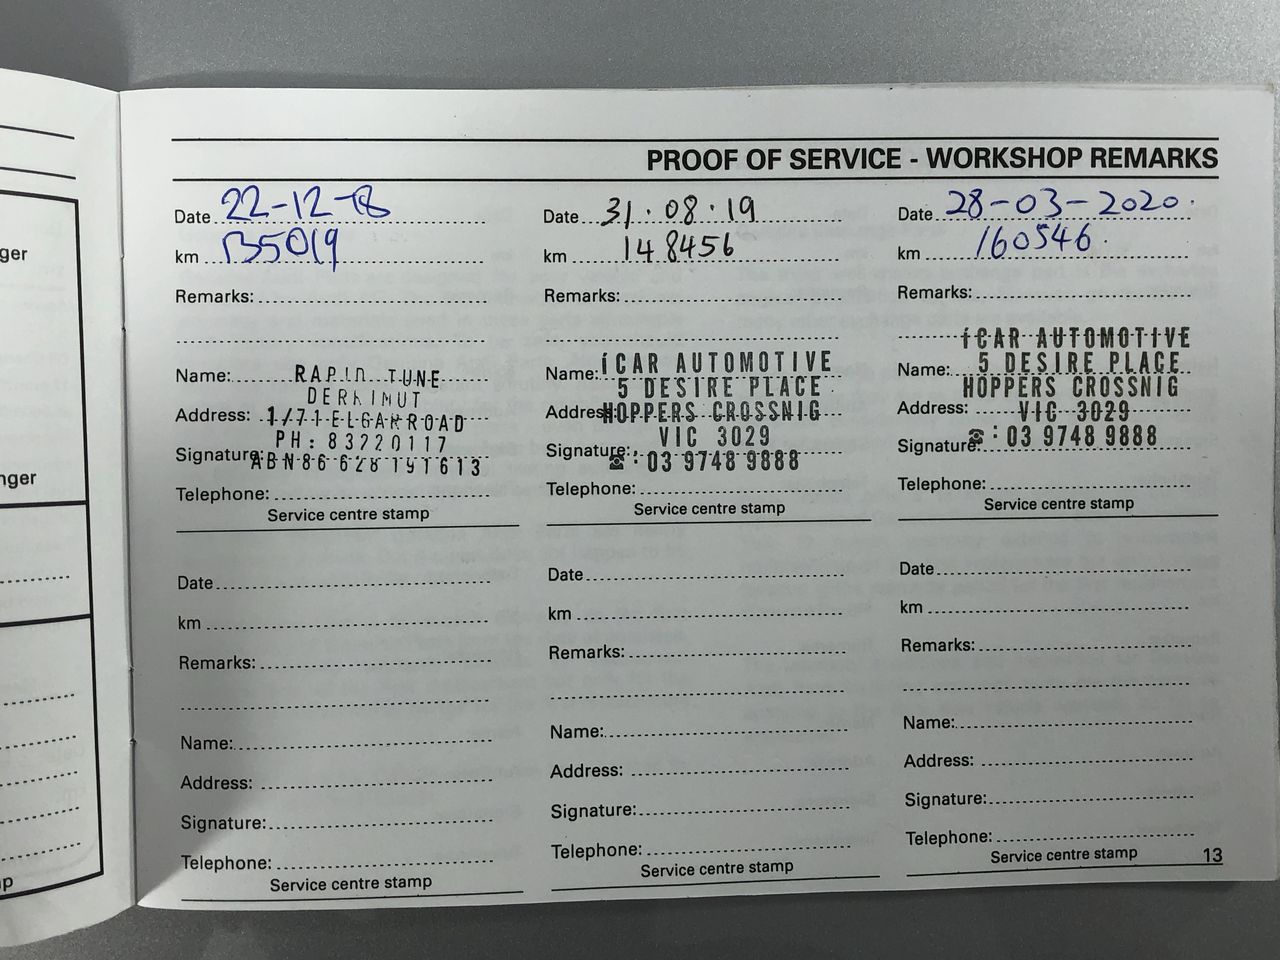 PROOF OF SERVICE - WORKSHOP REMARKS
Date 22-12-18
km 135019
Remarks:
Name: RAPID TUNE
DERRIMUT
Address: 1/71 ELGAR ROAD
PH: 83720117
Signature: ABN 86 628 191 613
Telephone:
Service centre stamp
Date 31.08.19
km 148456
Remarks:
Name: iCAR AUTOMOTIVE
5 DESIRE PLACE
Address: HOPPERS CROSSNIG
VIC 3029
Signature: ☎: 03 9748 9888
Telephone:
Service centre stamp
Date 28-03-2020.
km 160546.
Remarks:
iCAR AUTOMOTIVE
Name: 5 DESIRE PLACE
HOPPERS CROSSNIG
Address: VIC 3029
Signature: ☎: 03 9748 9888
Telephone:
Service centre stamp
Date
km
Remarks:
Name:
Address:
Signature:
Telephone:
Service centre stamp
Date
km
Remarks:
Name:
Address:
Signature:
Telephone:
Service centre stamp
Date
km
Remarks:
Name:
Address:
Signature:
Telephone:
Service centre stamp
13